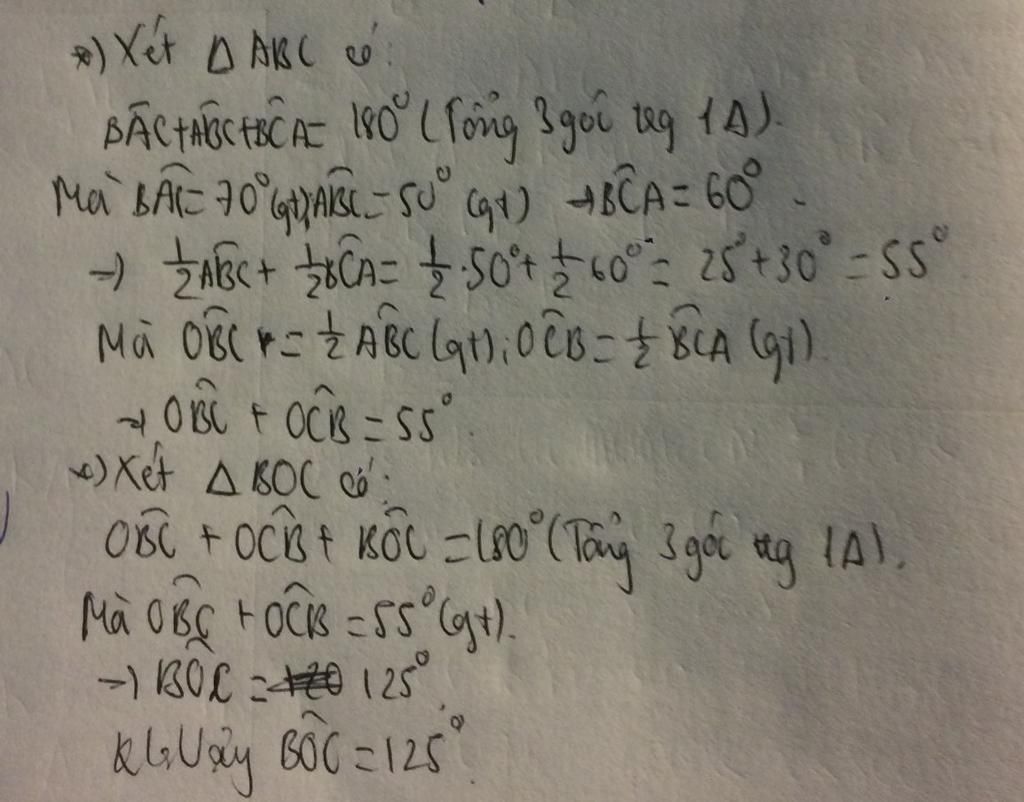 *) Xét Δ ABC có:
BÂC+AB̂C+BĈA= 180° (Tổng 3 góc trg 1Δ).
Mà BÂC=70°(gt);AB̂C=50° (gt) →BĈA=60°.
→) 1/2AB̂C + 1/2BĈA= 1/2.50°+1/2.60°= 25°+30°=55°
Mà OB̂C = 1/2 AB̂C (gt); OĈB=1/2 BĈA (gt).
→ OB̂C + OĈB=55°.
*) Xét Δ BOC có:
OB̂C + OĈB+ BÔC =180° (Tổng 3 góc trg 1Δ).
Mà OB̂C +OĈB=55°(gt).
→) BÔC = 125°.
KL: Vậy BÔC=125°.